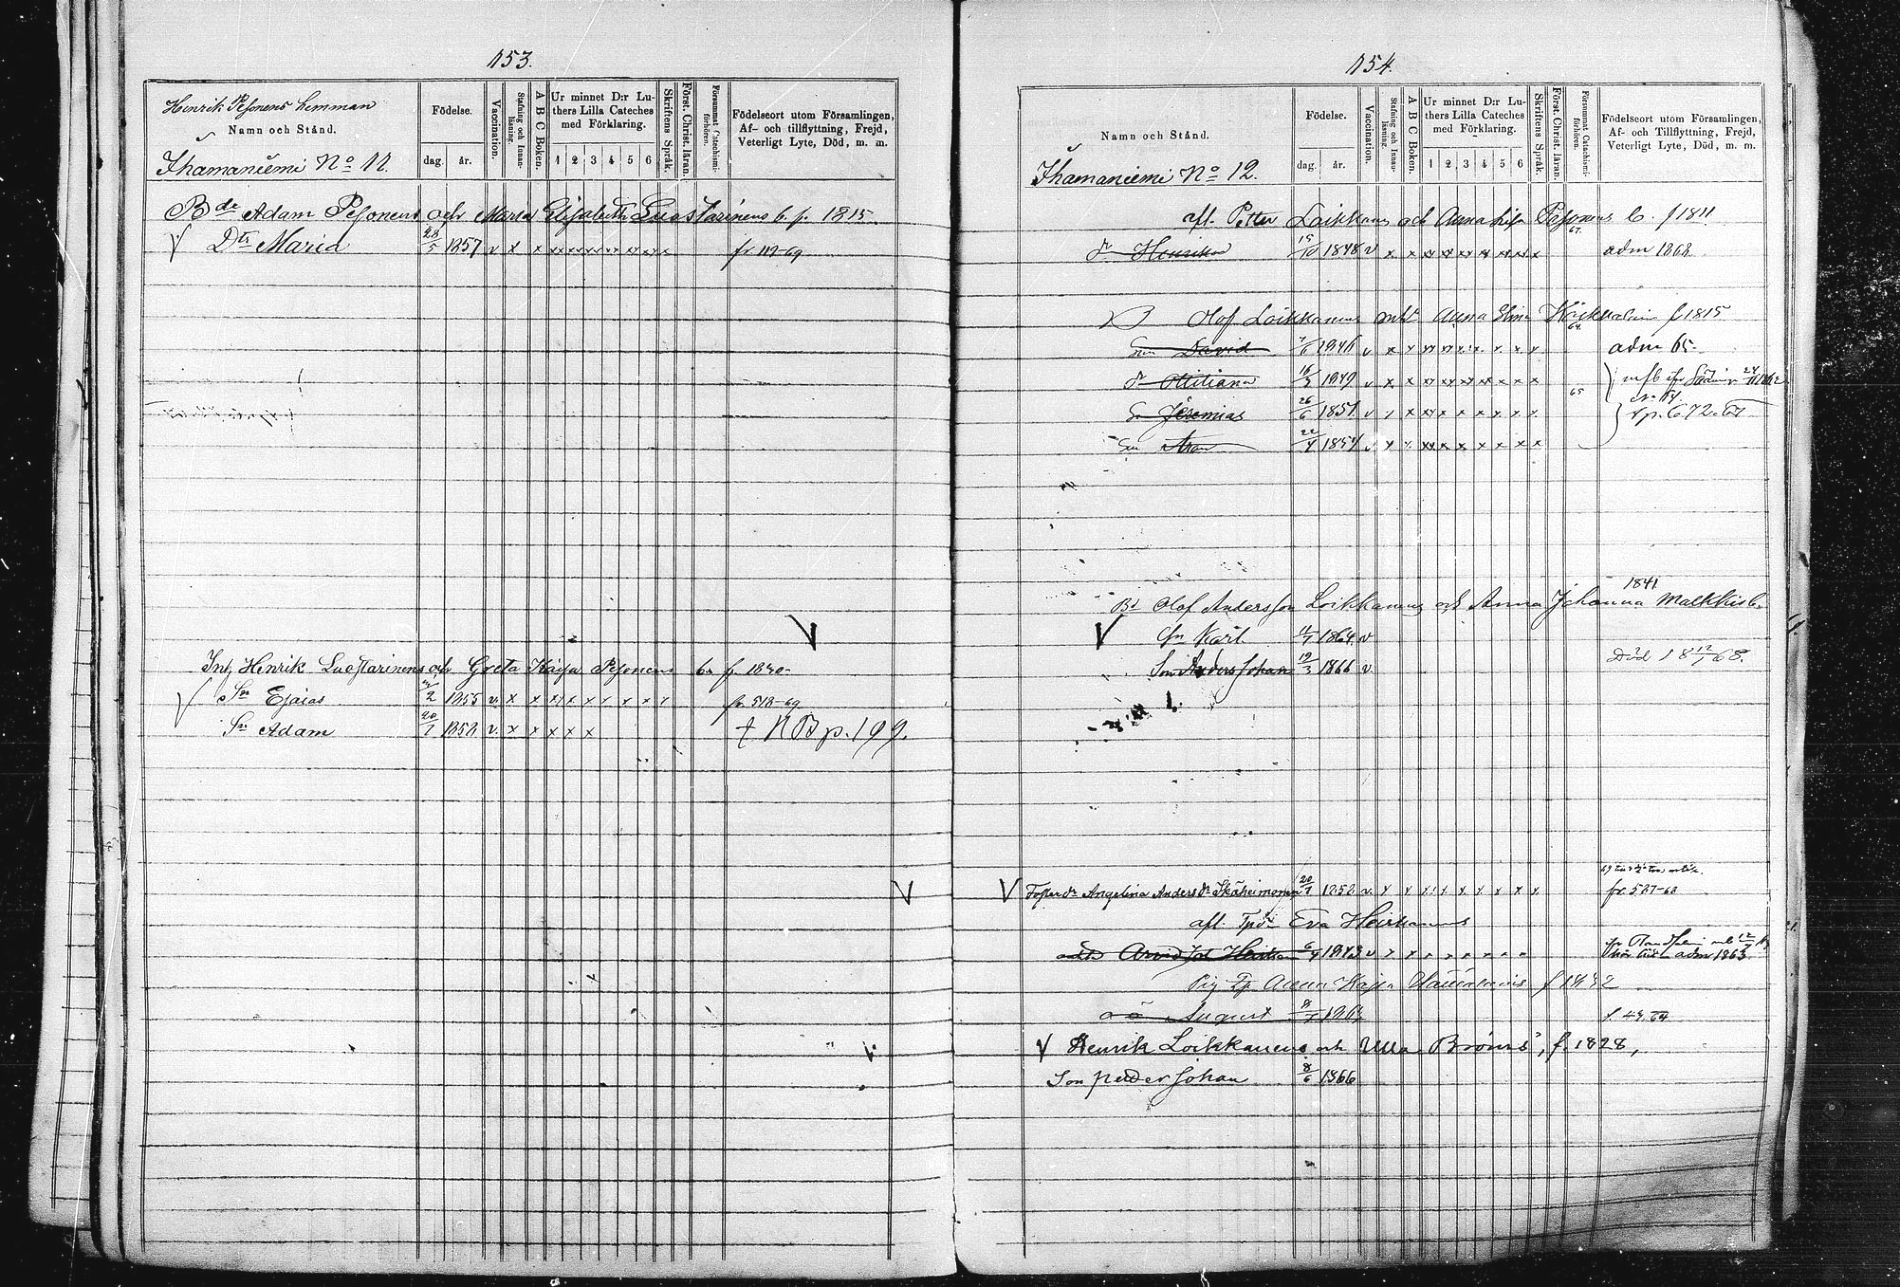 153.
Henrik Pesonens hemman
Namn och Stånd.
Ihamaniemi No 11.
Födelse.
dag. år.
Vaccination.
Stafning och Innanläsning.
A B C Boken.
Ur minnet D:r Luthers Lilla Cateches med Förklaring.
1 2 3 4 5 6
Skriftens Språk.
Först. Christ. läran.
Försummat Catechismiförhören.
Födelseort utom Församlingen,
Af- och tillflyttning, Frejd,
Veterligt Lyte, Död, m. m.
Bde Adam Pesonens och Maria Elisabeth Luostarinens b. f. 1815
V Dtr Maria 23/5 1857 v x x x x x x x x x fr 119-69
Inh Henrik Luostarinens och Greta Kaisa Pesonens b f. 1830
V Sn Esaias /2 1855 v. x x x x x x x x fr. 518-69
Sn Adam 20/7 1858 v. x x x x x † NB p. 199.
154.
Namn och Stånd.
Ihamaniemi No 12.
Födelse.
dag. år.
Vaccination.
Stafning och Innanläsning.
A B C Boken.
Ur minnet D:r Luthers Lilla Cateches med Förklaring.
1 2 3 4 5 6
Skriftens Språk.
Först. Christ. läran.
Försummat Catechismiförhören.
Födelseort utom Församlingen,
Af- och Tillflyttning, Frejd,
Veterligt Lyte, Död, m. m.
afl. Petter Loikkanens och Anna Lisa Pesonens b. f 1811
dr Henrika 15/10 1848 v x x x x x x x x x 67. adm 1868
Olof Loikkanens och Anna Elina f 1815
Sn David /6 1846 v x x x x x x x x x 64 adm 65
dr Ottiliana 16/3 1849 v x x x x x x x x x
Sn Jeremias 26/6 1851 v x x x x x x x x x 65 p. 672.
Sn Aron 22/4 1854 v x x x x x x x x x
1841
Bd Olof Andersson Loikkanens och Anna Johanna Malkkis b.
V Sn Karl 11/7 1864 v
Son Anders Johan 19/3 1866 v Död 18 12/1 68.
V Foster dr Angelina Anders dr 20/7 1852 v. x x x x x x x x x fr. 527-68
afl. Eva Heiskanens
Arvid 6/4 1843 v x x x x x x x x adm 1863
Anna Kajsa f 1832
oä August 8/7 1864 f. 49.
V Henrik Loikkanens och Ulla Bröms, f. 1828,
Son Peder Johan 8/6 1866